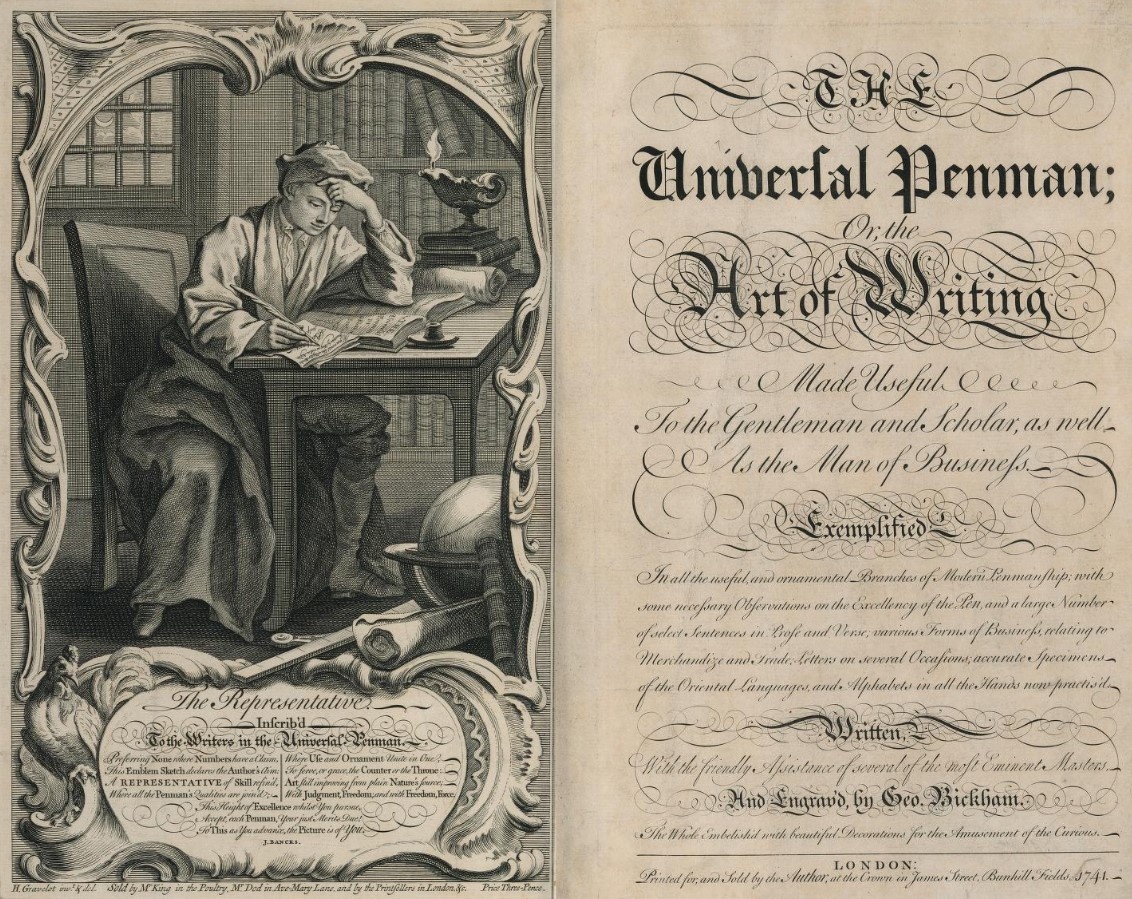 The Representative
Inscrib'd
To the Writers in the Universal Penman.
Preferring None where Numbers have a Claim,
This Emblem Sketch declares the Author's Aim:
A REPRESENTATIVE of Skill refin'd,
Where all the Penman's Qualities are join'd;
Where Use and Ornament Unite in One,
To serve, or grace, the Counter or the Throne:
Art, still improving from plain Nature's Source:
With Judgment, Freedom, and with Freedom, Force.
This Height of Excellence whilst You pursue,
Accept, each Penman, Your just Merits Due!
To This as You advance, the Picture is of You.
J. BANCKS.
H. Gravelot inv.t & del. Sold by Mr. King in the Poultry, Mr. Dod in Ave-Mary Lane, and by the Printsellers in London, &c. Price Three-Pence.
THE
Univerſal Penman;
Or, the
Art of Writing
Made Useful
To the Gentleman and Scholar, as well
As the Man of Buſineſs.
Exemplified
In all the useful, and ornamental Branches of Modern Penmanſhip; with
some neceſsary Obſervations on the Excellency of the Pen, and a large Number
of select Sentences in Proſe and Verse, various Forms of Buſineſs, relating to
Merchandize and Trade, Letters on several Occaſions; accurate Specimens
of the Oriental Languages, and Alphabets in all the Hands now practis'd.
Written,
With the friendly Aſsistance of several of the most Eminent Masters
And Engrav'd, by Geo. Bickham.
The Whole Embelish'd with beautiful Decorations for the Amusement of the Curious.
LONDON:
Printed for, and Sold by the Author, at the Crown in James Street, Bunhill Fields, 1741.